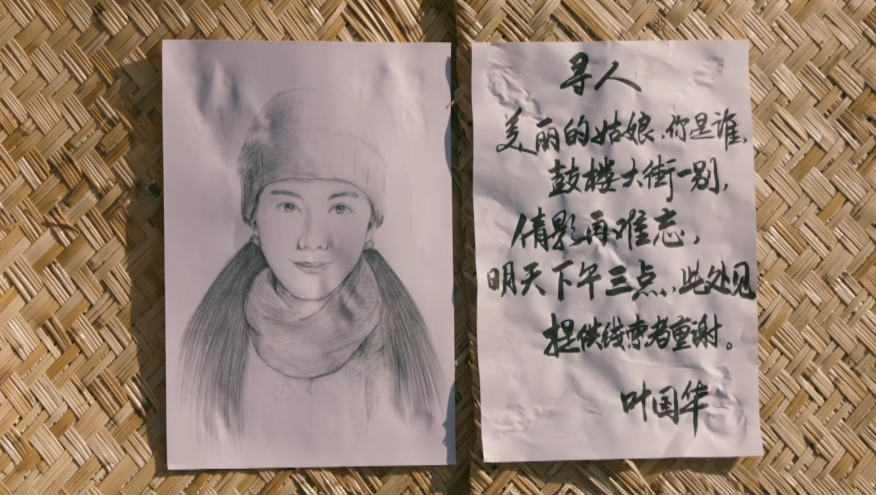 寻人
美丽的姑娘,你是谁,
鼓楼大街一别,
倩影再难忘,
明天下午三点,此处见
提供线索者重谢。
叶国华